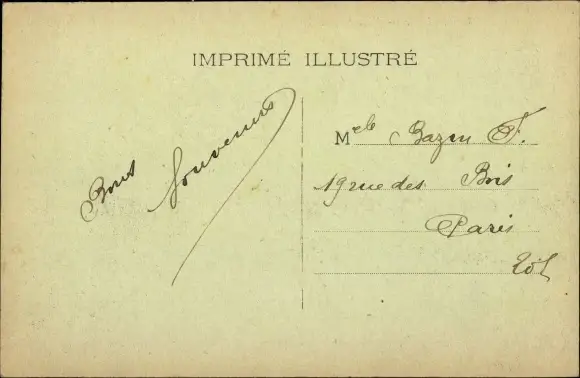 IMPRIMÉ ILLUSTRÉ
Bons Souvenirs
Melle Bazin F.
19 rue des Bois
Paris